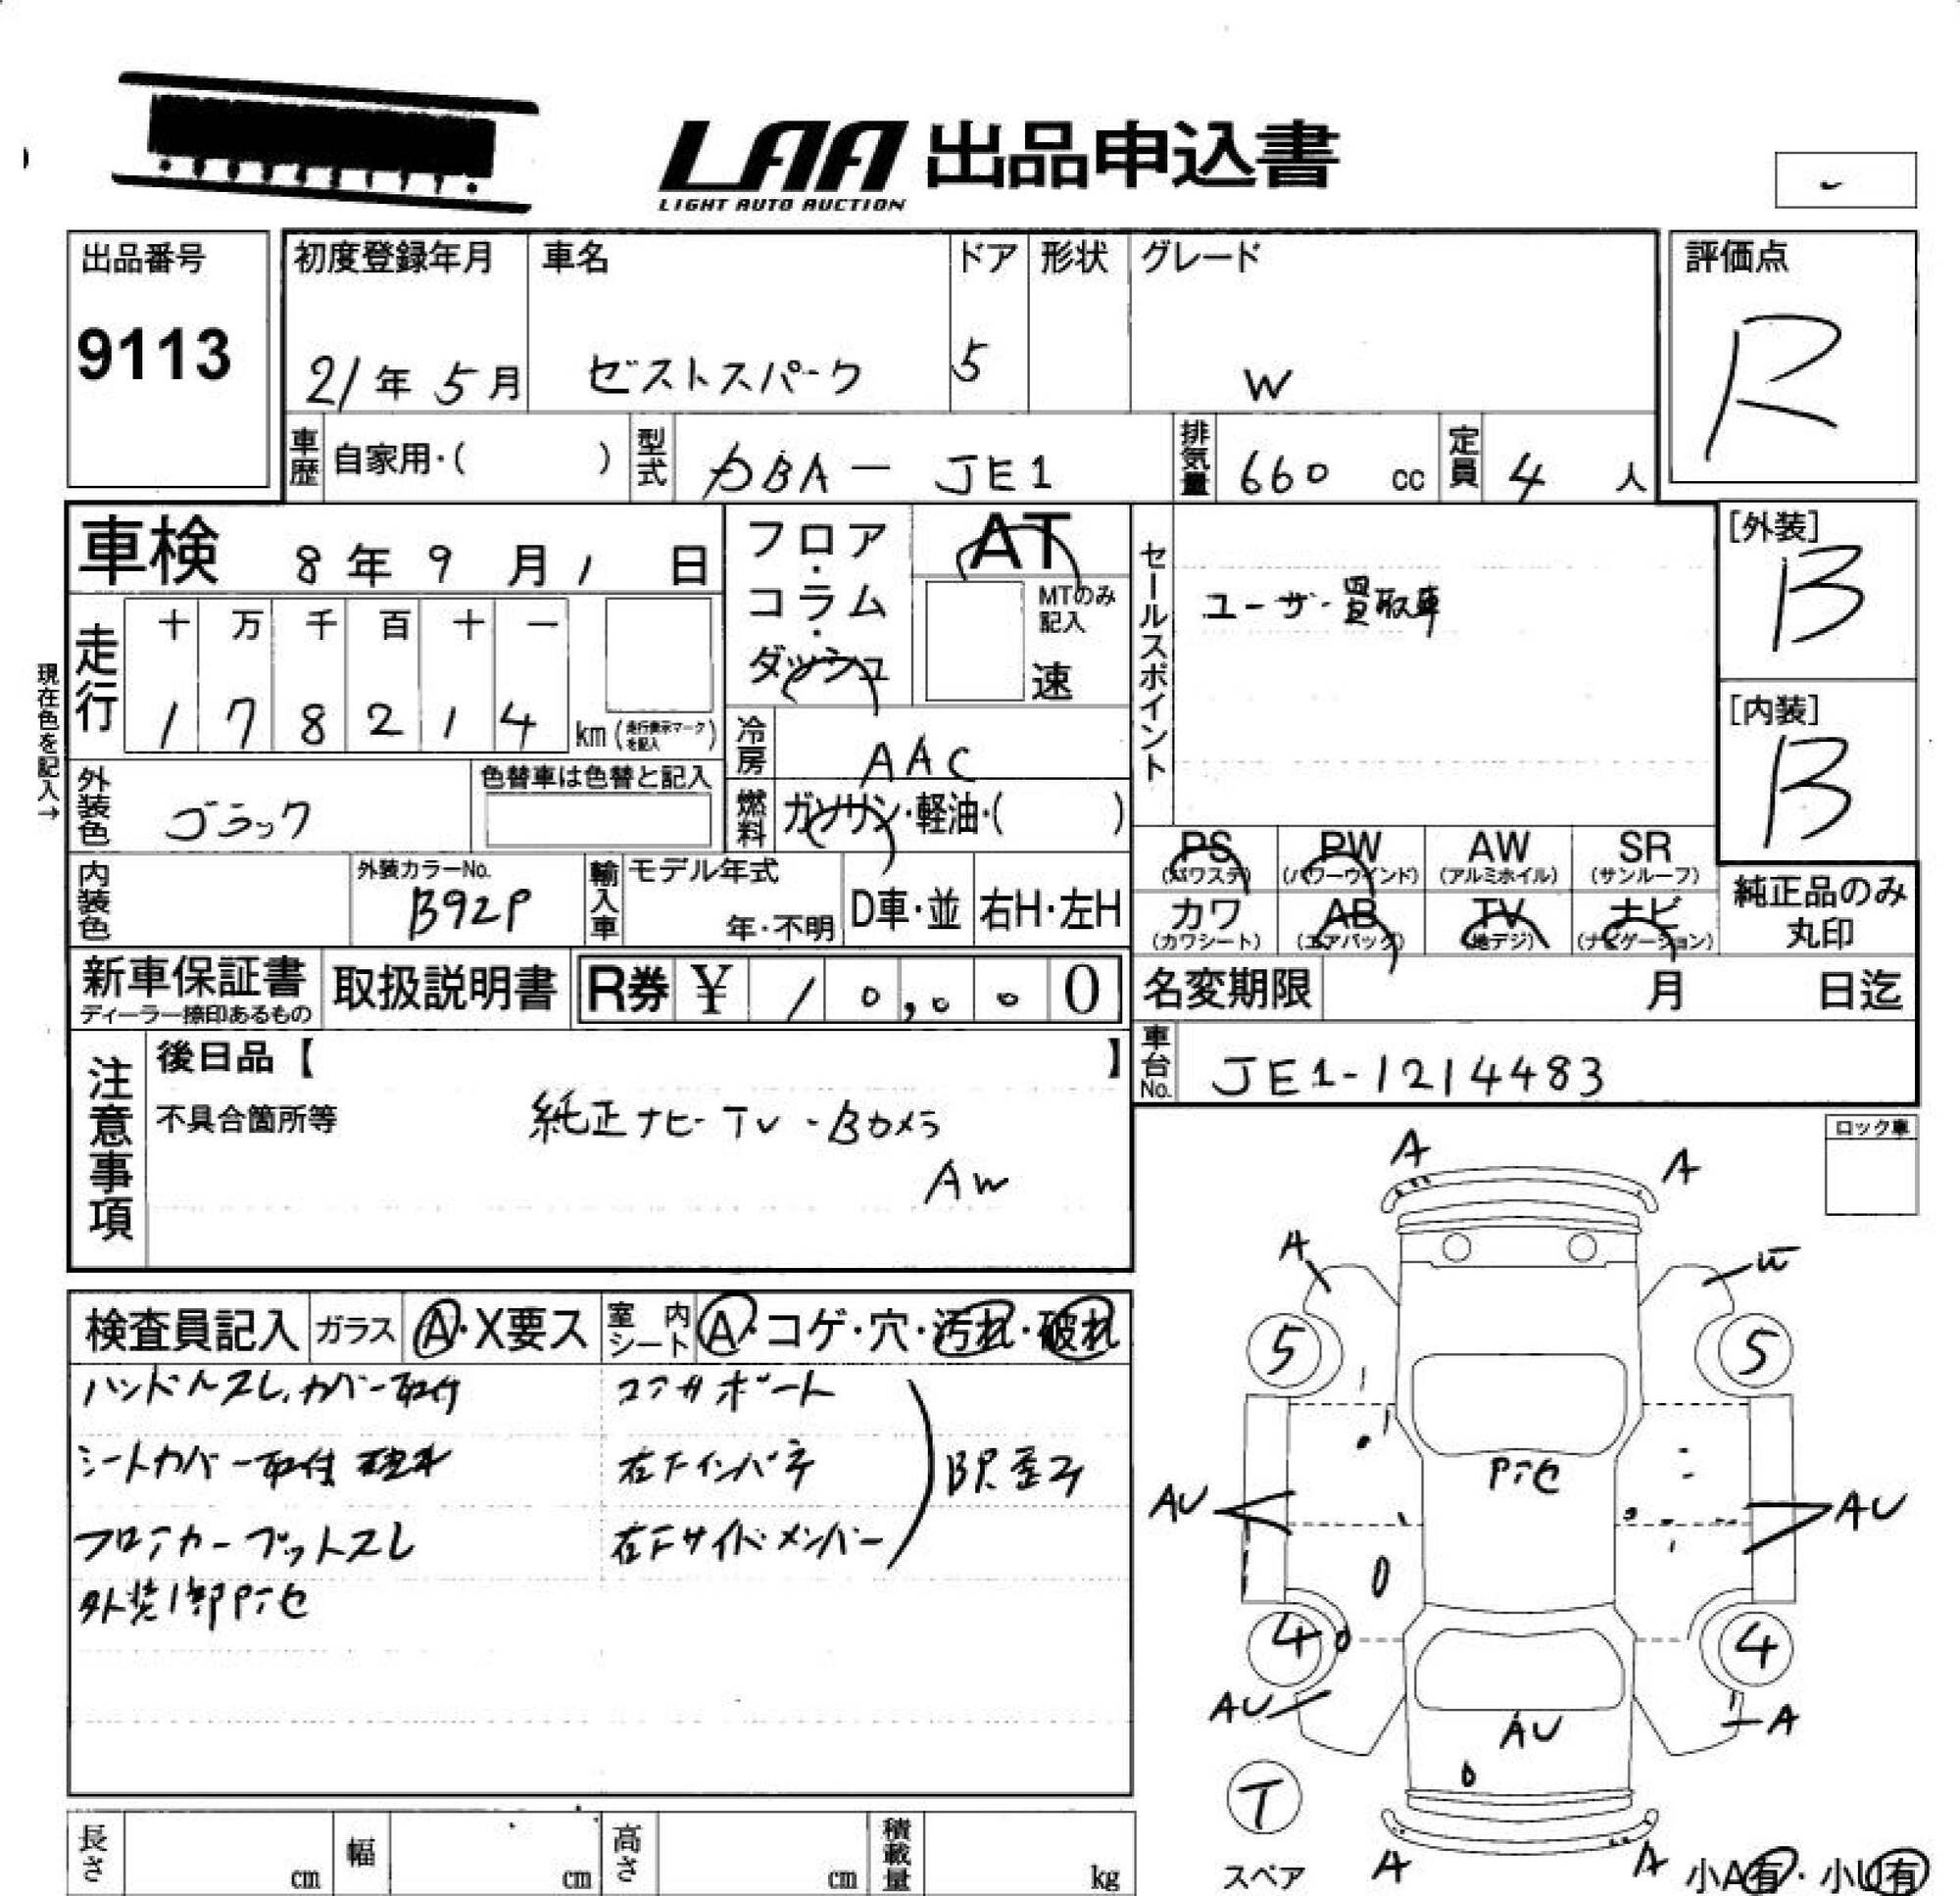 LAA 出品申込書
LIGHT AUTO AUCTION
出品番号
9113
初度登録年月
21年5月
車名
ゼストスパーク
ドア
5
形状
グレード
W
評価点
R
車歴 自家用・( )
型式 DBA－JE1
排気量 660 cc
定員 4 人
車検 8年9月1日
フロア・コラム・ダッシュ
AT
MTのみ記入
速
セールスポイント
ユーザー買取車
[外装]
B
[内装]
B
現在色を記入→
走行
十 万 千 百 十 一
1 7 8 2 1 4 km (走行表示マークを記入)
冷房 AAC
外装色 ブラック
色替車は色替と記入
燃料 ガソリン・軽油・( )
PS (パワステ)
PW (パワーウインド)
AW (アルミホイル)
SR (サンルーフ)
カワ (カワシート)
AB (エアバッグ)
TV (地デジ)
ナビ (ナビゲーション)
純正品のみ丸印
内装色
外装カラーNo.
B92P
輸入車
モデル年式
年・不明
D車・並
右H・左H
新車保証書
ディーラー捺印あるもの
取扱説明書
R券 ¥ 10,000
名変期限 月 日迄
注意事項
後日品【 】
不具合箇所等
純正ナビ-TV-Bカメラ
AW
車台No. JE1-1214483
ロック車
検査員記入
ガラス A・X要ス
室内シート A・コゲ・穴・汚れ・破れ
ハンドルスレ、カバー取付
シートカバー取付
フロアカーペットスレ
外装1部Pハセ
コアサポート
右Fインパネ
右Fサイドメンバー
A
A
A
W
5
5
Pハセ
AU
AU
4
4
AU
AU
A
T
スペア
A
A
小A有・小U有
長さ cm
幅 cm
高さ cm
積載量 kg